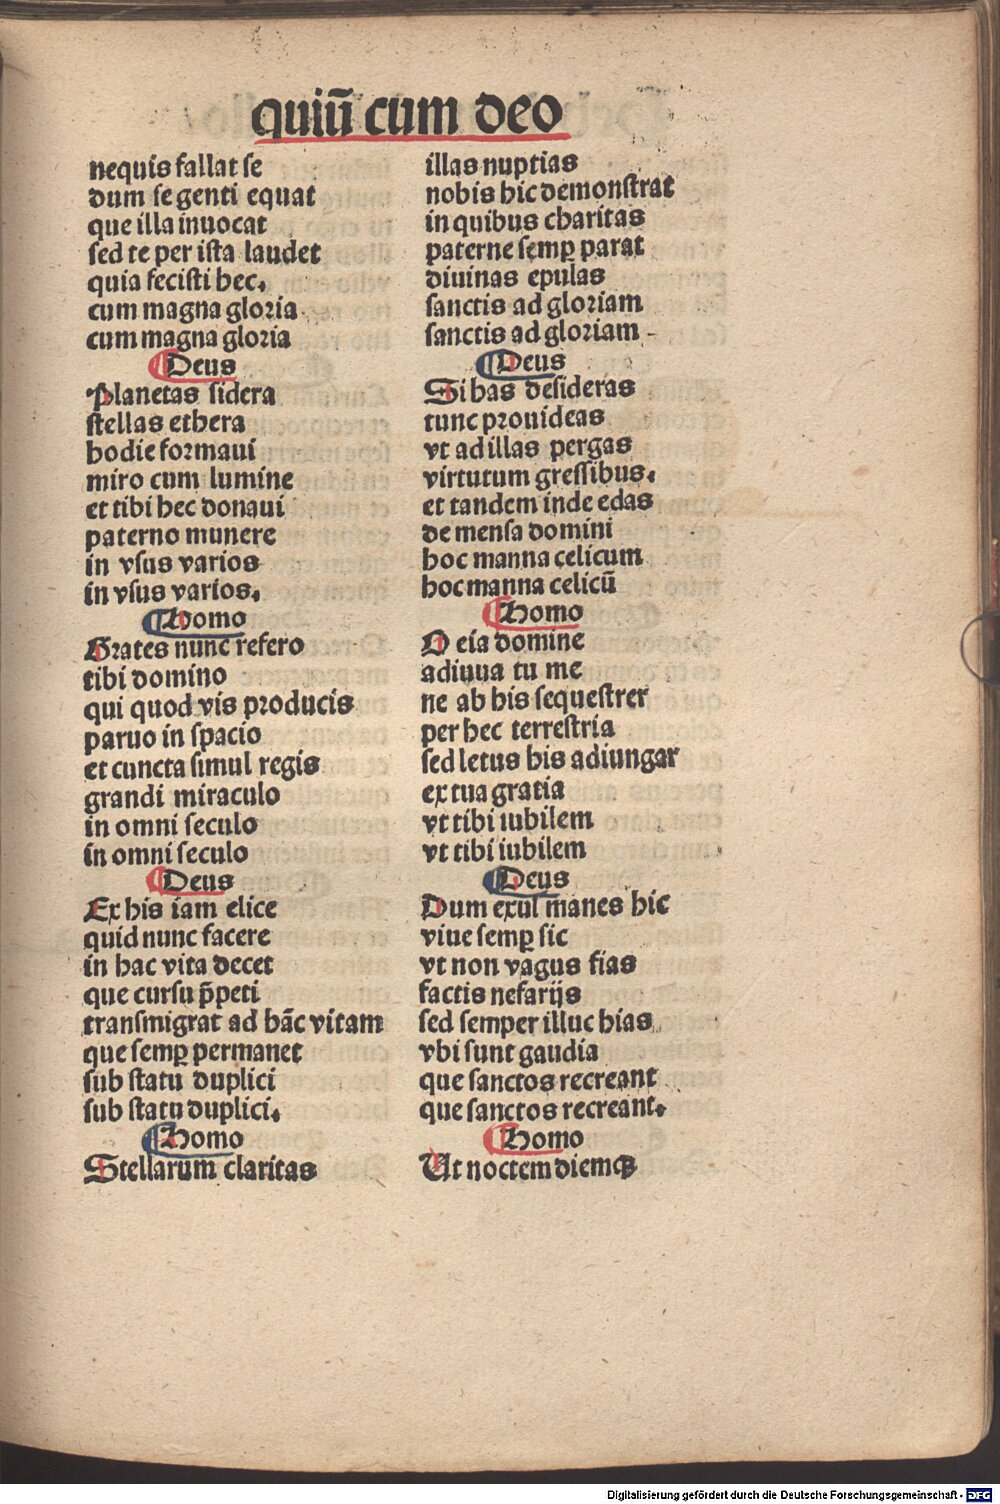 quiū cum deo
nequis fallat se
dum se genti equat
que illa inuocat
sed te per ista laudet
quia fecisti hec.
cum magna gloria
cum magna gloria
Deus
Planetas sidera
stellas ethera
hodie formaui
miro cum lumine
et tibi hec donaui
paterno munere
in vsus varios
in vsus varios.
Homo
Grates nunc refero
tibi domino
qui quod vis producis
paruo in spacio
et cuncta simul regis
grandi miraculo
in omni seculo
in omni seculo
Deus
Ex his iam elice
quid nunc facere
in hac vita decet
que cursu p̄peti
transmigrat ad hāc vitam
que semꝑ permanet
sub statu duplici
sub statu duplici.
Homo
Stellarum claritas
illas nuptias
nobis hic demonstrat
in quibus charitas
paterne semꝑ parat
diuinas epulas
sanctis ad gloriam
sanctis ad gloriam
Deus
Si has desideras
tunc prouideas
vt ad illas pergas
virtutum gressibus.
et tandem inde edas
de mensa domini
hoc manna celicum
hoc manna celicū
Homo
O eia domine
adiuua tu me
ne ab his sequestrer
per hec terrestria
sed letus his adiungar
ex tua gratia
vt tibi iubilem
vt tibi iubilem
Deus
Dum exul manes hic
viue semꝑ sic
vt non vagus fias
factis nefarijs
sed semper illuc hias
vbi sunt gaudia
que sanctos recreant
que sanctos recreant.
Homo
Ut noctem diemqꝫ
Digitalisierung gefördert durch die Deutsche Forschungsgemeinschaft - DFG